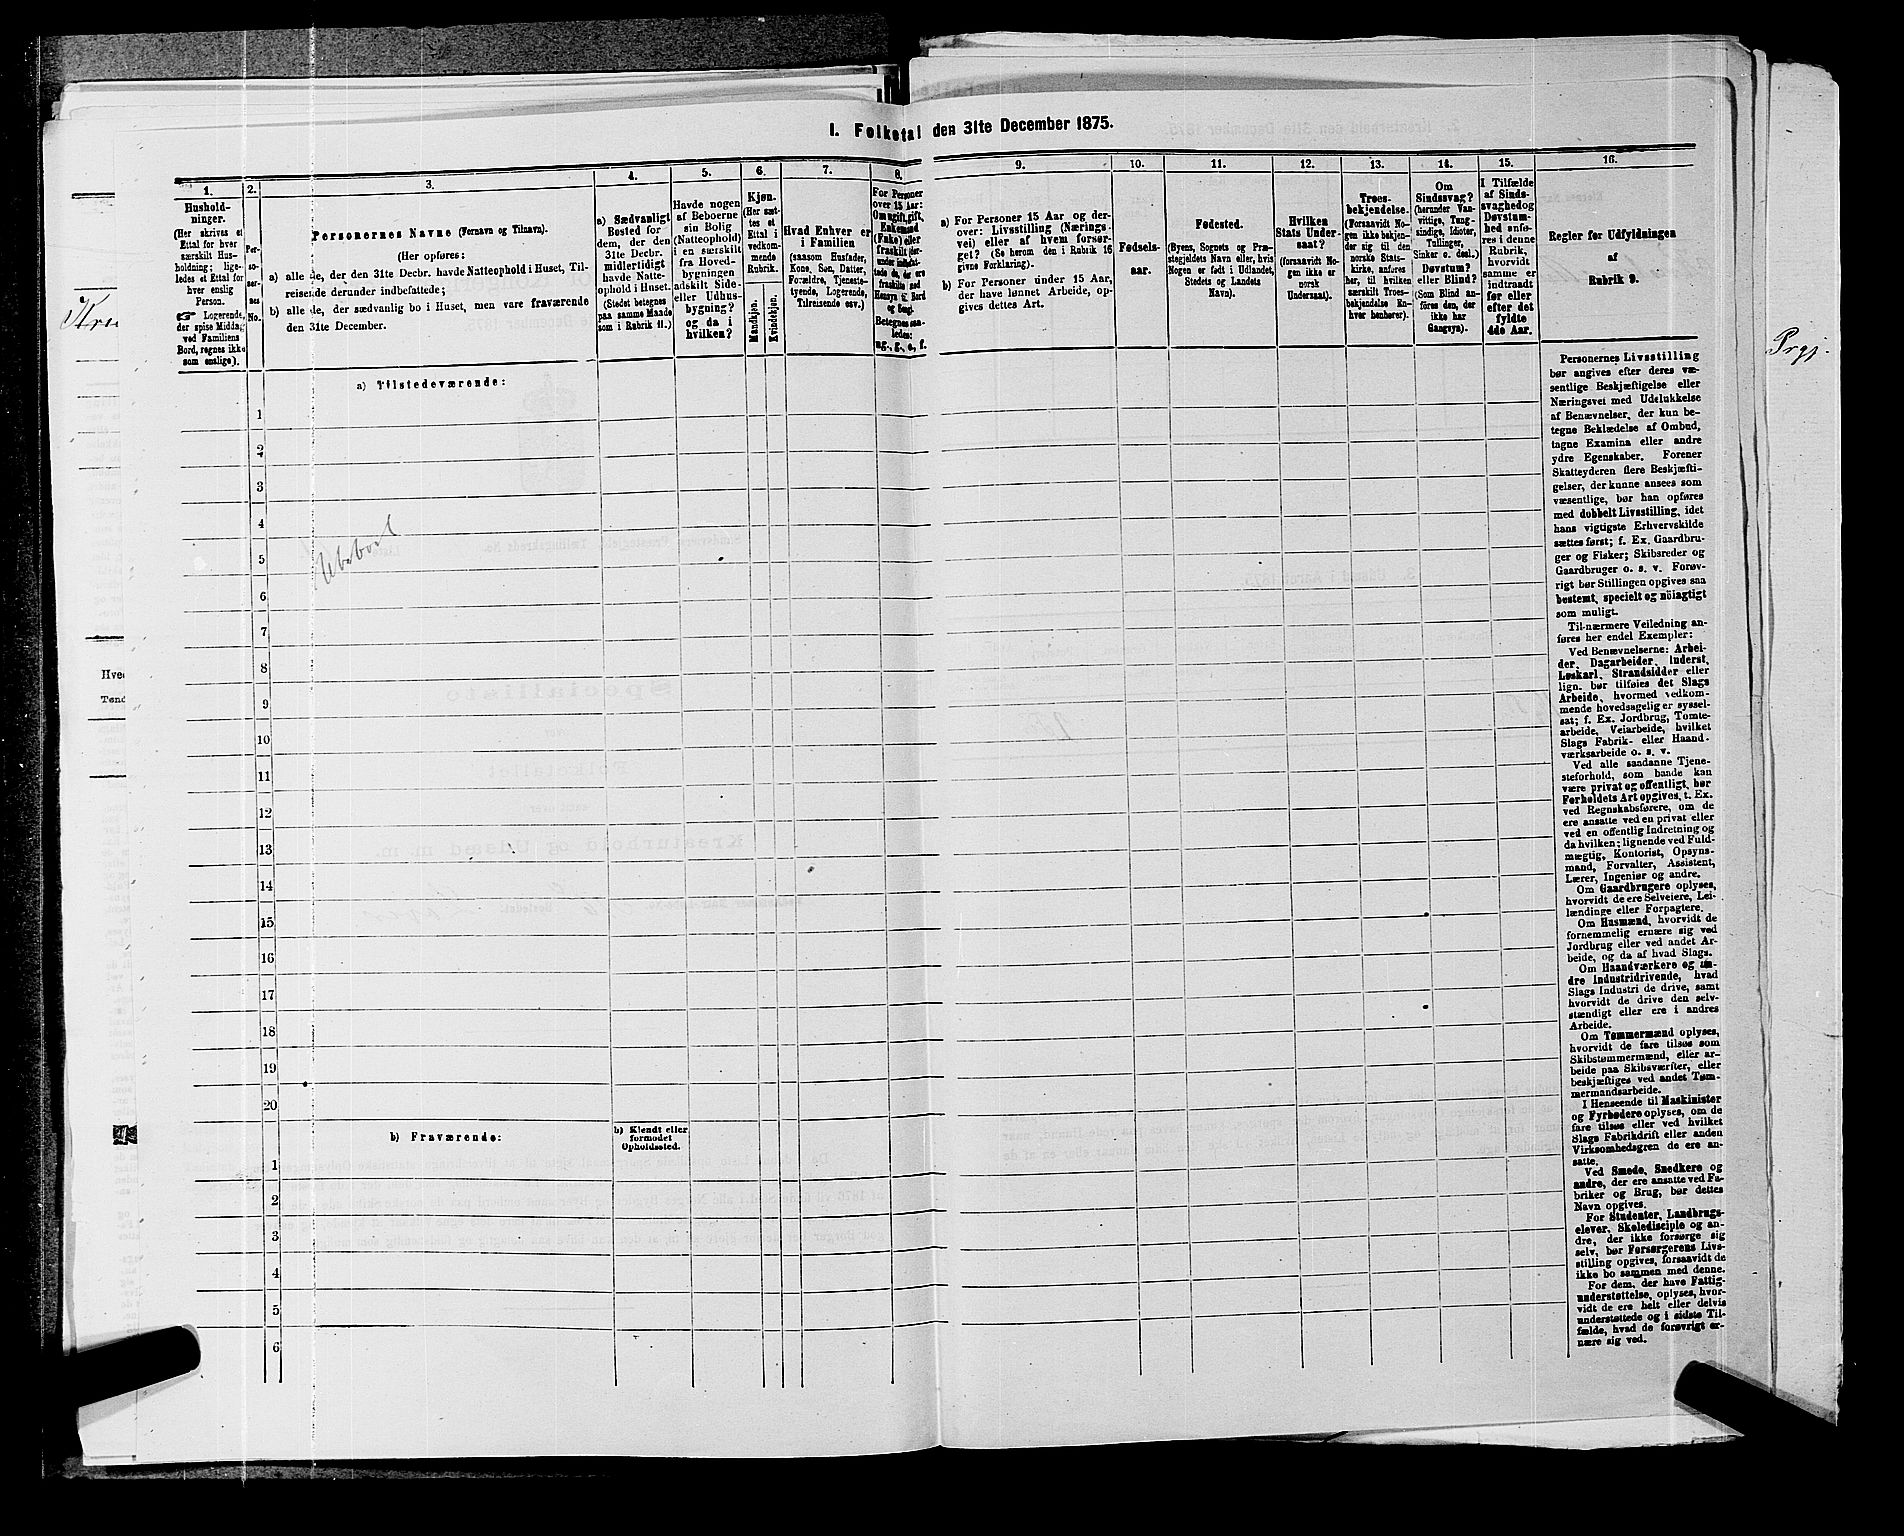 I. Folketal den 31te December 1875.
1.
Hushold-
ninger.
(Her skrives et
Ettal for hver
særskilt Hus-
holdning; lige-
ledes et Ettal for
hver enslig
Person.
☞ Logerende,
der spise Middag
ved Familiens
Bord, regnes ikke
som enslige).
2.
Per-
so-
ner-
nes
No.
3.
Personernes Navne (Fornavn og Tilnavn).
(Her opføres:
a) alle de, der den 31te Decbr. havde Natteophold i Huset, Til-
reisende derunder indbefattede;
b) alle de, der sædvanlig bo i Huset, men vare fraværende
den 31te December.
4.
a) Sædvanligt
Bosted for
dem, der den
31te Decbr.
midlertidigt
havde Natte-
ophold i Huset.
(Stedet betegnes
paa samme Maade
som i Rubrik 11.)
5.
Havde nogen
af Beboerne
sin Bolig
(Natteophold)
i en særskilt
fra Hoved-
bygningen
adskilt Side-
eller Udhus-
bygning?
og da i
hvilken?
6.
Kjøn.
(Her sæt-
tes et
Ettal i
vedkom-
mende
Rubrik.
Mandkjøn.
Kvindekjøn.
7.
Hvad Enhver er
i Familien
(saasom Husfader,
Kone, Søn, Datter,
Forældre, Tjeneste-
tyende, Logerende,
Tilreisende osv.)
8.
For Personer
over 15 Aar:
Om ugift, gift,
Enkemand
(Enke) eller
fraskilt der-
under indbefat-
tede de, der ere
fraskilte med
Hensyn til Bord
og Seng).
Betegnes saa-
ledes:
ug., g., e., f.
9.
a) For Personer 15 Aar og der-
over: Livsstilling (Nærings-
vei) eller af hvem forsør-
get? (Se herom den i Rubik 16
givne Forklaring).
b) For Personer under 15 Aar,
der have lønnet Arbeide, op-
gives dettes Art.
10.
Fødsels-
aar.
11.
Fødested.
(Byens, Sognets og Præ-
stegjeldets Navn eller, hvis
Nogen er født i Udlandet,
Stedets og Landets
Navn).
12.
Hvilken
Stats Under-
saat?
(forsaavidt No-
gen ikke er
norsk
Undersaat).
13.
Troes-
bekjendelse.
(Forsaavidt No-
gen ikke bekjen-
der sig til den
norske Stats-
kirke, anføres
her, til hvilken
særskilt Troes-
bekjendelse En-
hver henhører).
14.
Om
Sindssvag?
(herunder Van-
vittige, Tung-
sindige, Idioter,
Tullinger,
Sinker o. desl.)
Døvstum?
eller Blind?
(Som Blind an-
føres den, der
ikke har
Gangsyn).
15.
I Tilfælde
af Sinds-
svaghed og
Døvstum-
hed anfø-
res i denne
Rubrik,
hvorvidt
samme er
indtraadt
før eller
efter det
fyldte
4de Aar.
16.
Regler for Udfyldningen
af
Rubrik 9.
a) Tilstedeværende:
1
2
3
4
Ubeboet
5
6
7
8
9
10
11
12
13
14
15
16
17
18
19
20
b) Fraværende:
b) Kjendt eller
formodet
Opholdssted.
1
2
3
4
5
6
Personernes Livsstilling
bør angives efter deres væ-
sentlige Beskjæftigelse eller
Næringsvei med Udelukkelse
af Benævnelser, der kun be-
tegne Beklædelse af Ombud,
tagne Examina eller andre
ydre Egenskaber. Forener
Skatteyderen flere Beskjæfti-
gelser, der kunne ansees som
væsentlige, bør han opføres
med dobbelt Livsstilling, idet
hans vigtigste Erhvervskilde
sættes først; f. Ex. Gaardbru-
ger og Fisker; Skibsreder og
Gaardbruger o. s. v. Forøv-
rigt bør Stillingen opgives saa
bestemt, specielt og nöiagtigt
som muligt.
Til nærmere Veiledning an-
føres her endel Exempler:
Ved Benævnelserne: Arbei-
der, Dagarbeider, Inderst,
Løskarl, Strandsidder eller
lign. bør tilføies det Slags
Arbeide, hvormed vedkom-
mende hovedsagelig er syssel-
sat; f. Ex. Jordbrug, Tomte-
arbeide, Veiarbeide, hvilket
Slags Fabrik- eller Haand-
værksarbeide o. s. v.
Ved alle saadanne Tjene-
steforhold, som baade kan
være privat og offentligt, bør
Forholdets Art opgives, t. Ex.
ved Regnskabsførere, om de
ere ansatte ved en privat eller
ved en offentlig Indretning og
da hvilken; lignende ved Fuld-
mægtig, Kontorist, Opsyns-
mand, Forvalter, Assistent,
Lærer, Ingeniør og andre.
Om Gaardbrugere oplyses,
hvorvidt de ere Selveiere, Lei-
lændinge eller Forpagtere.
Om Husmænd, hvorvidt de
fornemmelig ernære sig ved
Jordbrug eller ved andet Ar-
beide, og da af hvad Slags.
Om Haandværkere og an-
dre Industridrivende, hvad
Slags Industri de drive, samt
hvorvidt de drive den selv-
stændigt eller ere i andres
Arbeide.
Om Tømmermænd oplyses,
hvorvidt de fare tilsøs som
Skibstømmermænd, eller ar-
beide paa Skibsværfter, eller
beskjæftiges ved andet Tøm-
mermandsarbeide.
I Henseende til Maskinister
og Fyrbødere oplyses, om de
fare tilsøs eller ved hvilket
Slags Fabrikdrift eller anden
Virksomhedsgren de ere an-
satte.
Ved Smede, Snedkere og
andre, der ere ansatte ved Fa-
briker og Brug, bør dettes
Navn opgives.
For Studenter, Landbrugs-
elever, Skoledisciple og an-
dre, der ikke forsørge sig
selv, bør Forsørgerens Livs-
stilling opgives, forsaavidt de
ikke bo sammen med denne.
For dem, der have Fattig-
understøttelse, oplyses, hvor-
vidt de ere helt eller delvis
understøttede og i sidste Til-
fælde, hvad de forøvrigt er-
nære sig ved.